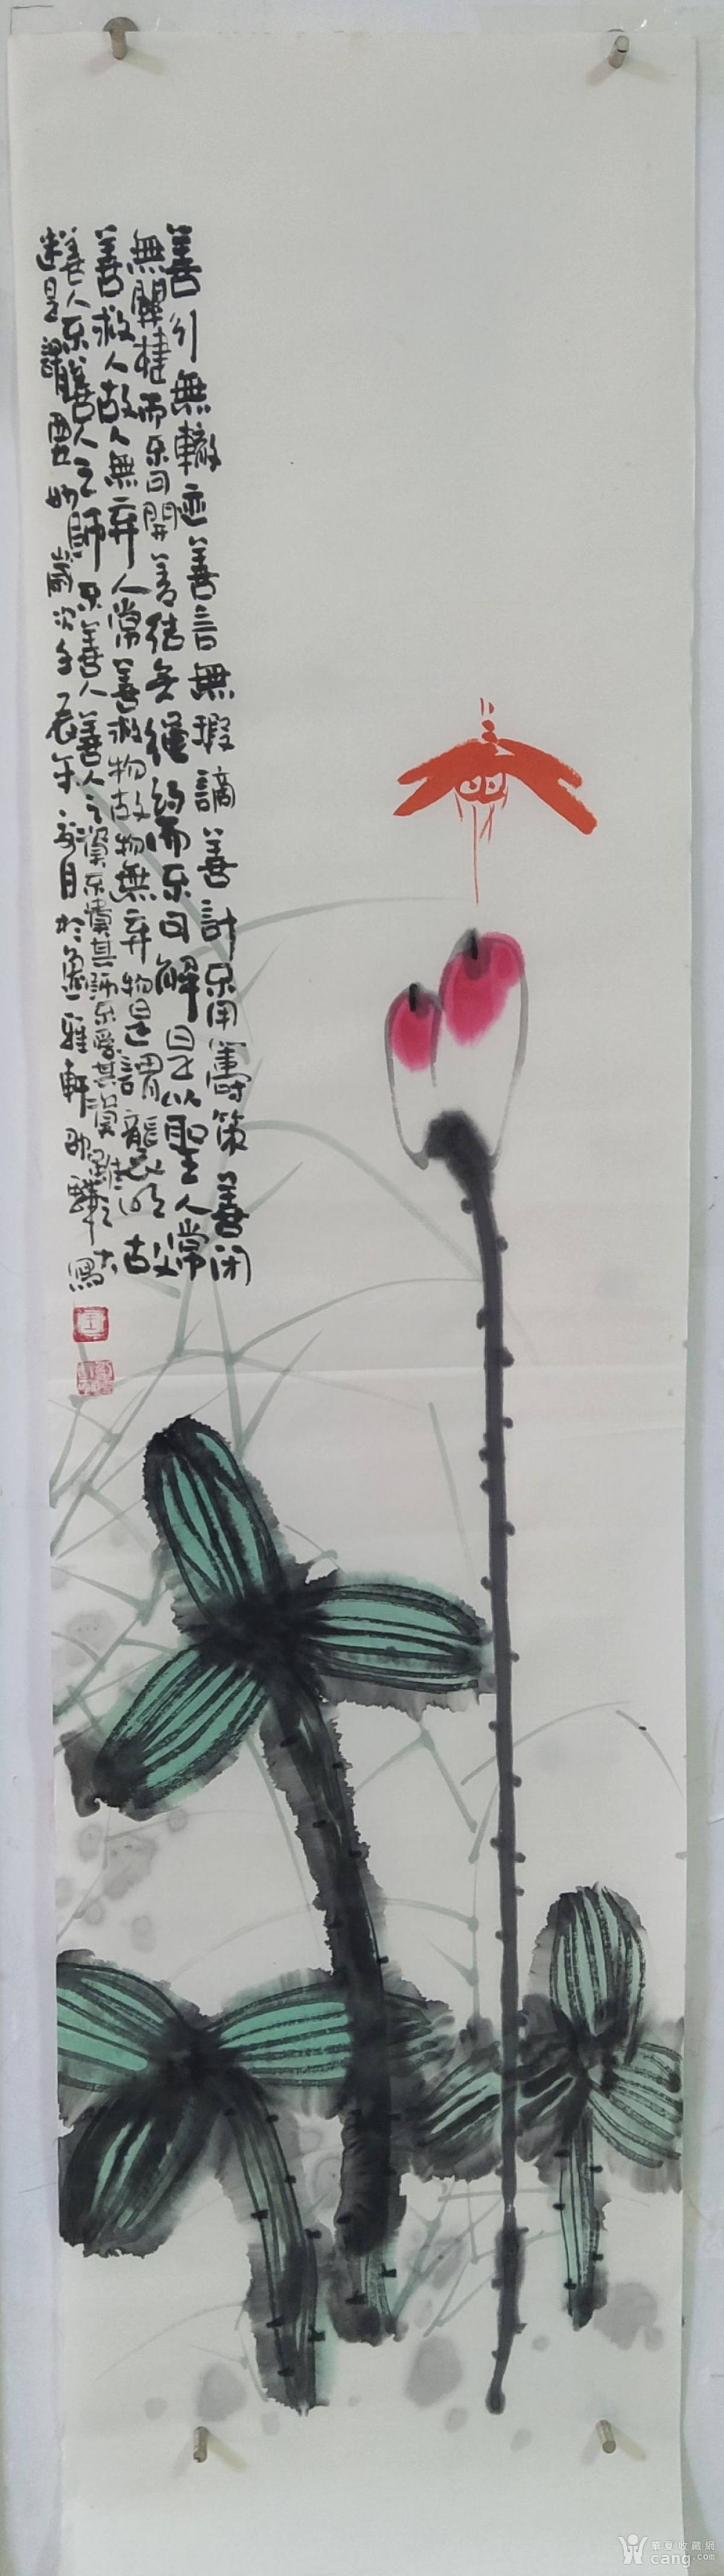 善行無轍迹善言無瑕謫善計不用籌策善閉
無關楗而不可開善結無繩約而不可解是以聖人常
善救人故人無棄人常善救物故物無棄物是謂襲明故
善人不善人之師不善人善人之資不貴其師不愛其資雖智大
迷是謂要妙 歲次壬辰年月於雅軒寫
華夏收藏網
cang.com